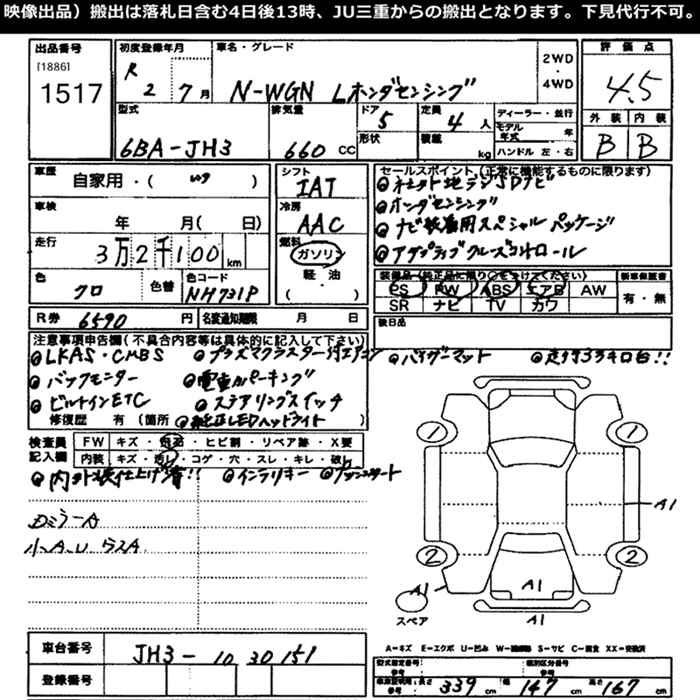 映像出品）搬出は落札日含む4日後13時、JU三重からの搬出となります。下見代行不可。
出品番号 初度登録年月 車名・グレード 評価点
[1886] R 2年 7月 N-WGN Lホンダセンシング 2WD・4WD 4.5
1517
型式 排気量 ドア 定員 ディーラー・並行 外装 内装
6BA-JH3 660cc 5 4人 モデル年式 年 B B
形状 積載 kg ハンドル 左・右
車歴 自家用・( ) シフト IAT セールスポイント(正常に機能するものに限ります)
車検 年 月( 日) 冷房 AAC
●ホンダセンシング
●ナビ装着用スペシャルパッケージ
走行 3万2千100km 燃料 ガソリン 軽・油 ( )
●アダプティブクルーズコントロール
色 クロ 色替 色コード NH731P
装備品(純正品に限り○をつけてください) 新車保証書
PS PW ABS エアB AW 有・無
SR ナビ TV カワ
R券 6590円 名変通知期限 月 日 後日品
注意事項申告欄(不具合内容等は具体的に記入して下さい)
●LKAS・CMBS ●プラズマクラスター付エアコン ●バイザーマット ●走行33キロ台!!
●バックモニター ●電動パーキング
●ビルトインETC ●ステアリングスイッチ
修復歴 有 (箇所 ●純正LEDヘッドライト
検査員記入欄 FW キズ・飛石・ヒビ割・リペア跡・X要
内装 キズ・汚レ・コゲ・穴・スレ・キレ・破レ
●内外装仕上げ済!! ●インテリキー ●プッシュスタート
DミラーA
小A.U ラスA
1 1
A1
2 2
A1 A1
スペア A1
A－キズ E－エクボ U－凹ミ W－補修跡 S－サビ C－腐食 XX－交換済
車台番号 JH3-1030151
型式指定番号 参考 類別区分番号 参考
登録番号 車検証明用 参考 長さ 339cm 幅 147cm 高さ 167cm